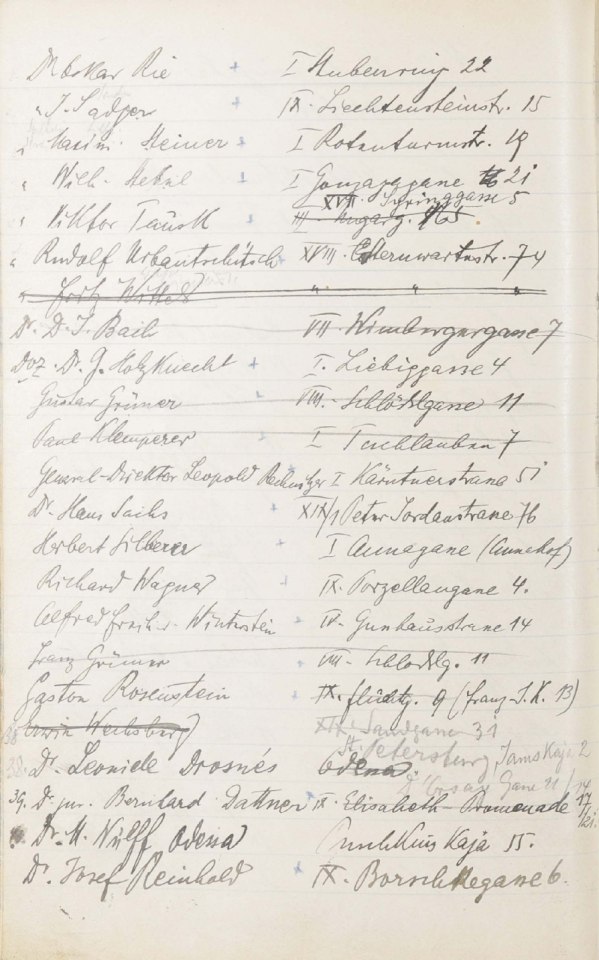 Dr Oskar Rie + I Stubenring 22
" J. Sadger + IX. Liechtensteinstr. 15
" Maxim. Steiner + I Rotenturmstr. 19
" Wilh. Stekel I Gonzagagasse 21
XVIII. Syringgasse 5
" Viktor Tausk III
" Rudolf Urbantschitsch + XVIII. Sternwartestr. 74
" Fritz Wittels " " "
Dr. D. J. Bach VII Wimbergergasse 7
Doz. Dr. G. Holzknecht + I. Liebiggasse 4
Gustav Grüner VIII. Schlösslgasse 11
Paul Klemperer I Tuchlauben 7
General-Direktor Leopold Rechnitzer I Kärtnerstrasse 51
Dr. Hans Sachs + XIX/1 Peter Jordanstrasse 76
Herbert Silberer + I Annagasse (Annahof)
Richard Wagner IX. Porzellangasse 4.
Alfred Freiherr Winterstein + IV. Gusshausstrasse 14
Franz Grüner VIII. Schlösslg. 11
Gaston Rosenstein + IX. (Franz J. K. 13)
Erwin Wechsberg 31
St. Petersburg 2
38. Dr. Leonide Drosnés Odessa
39. Dr. jur. Bernhard Dattner IX. Elisabeth-Promenade 17
Dr. M. Wulff Odessa Puschkinskaja 55.
Dr. Josef Reinhold + IX. Borschkegasse 6.